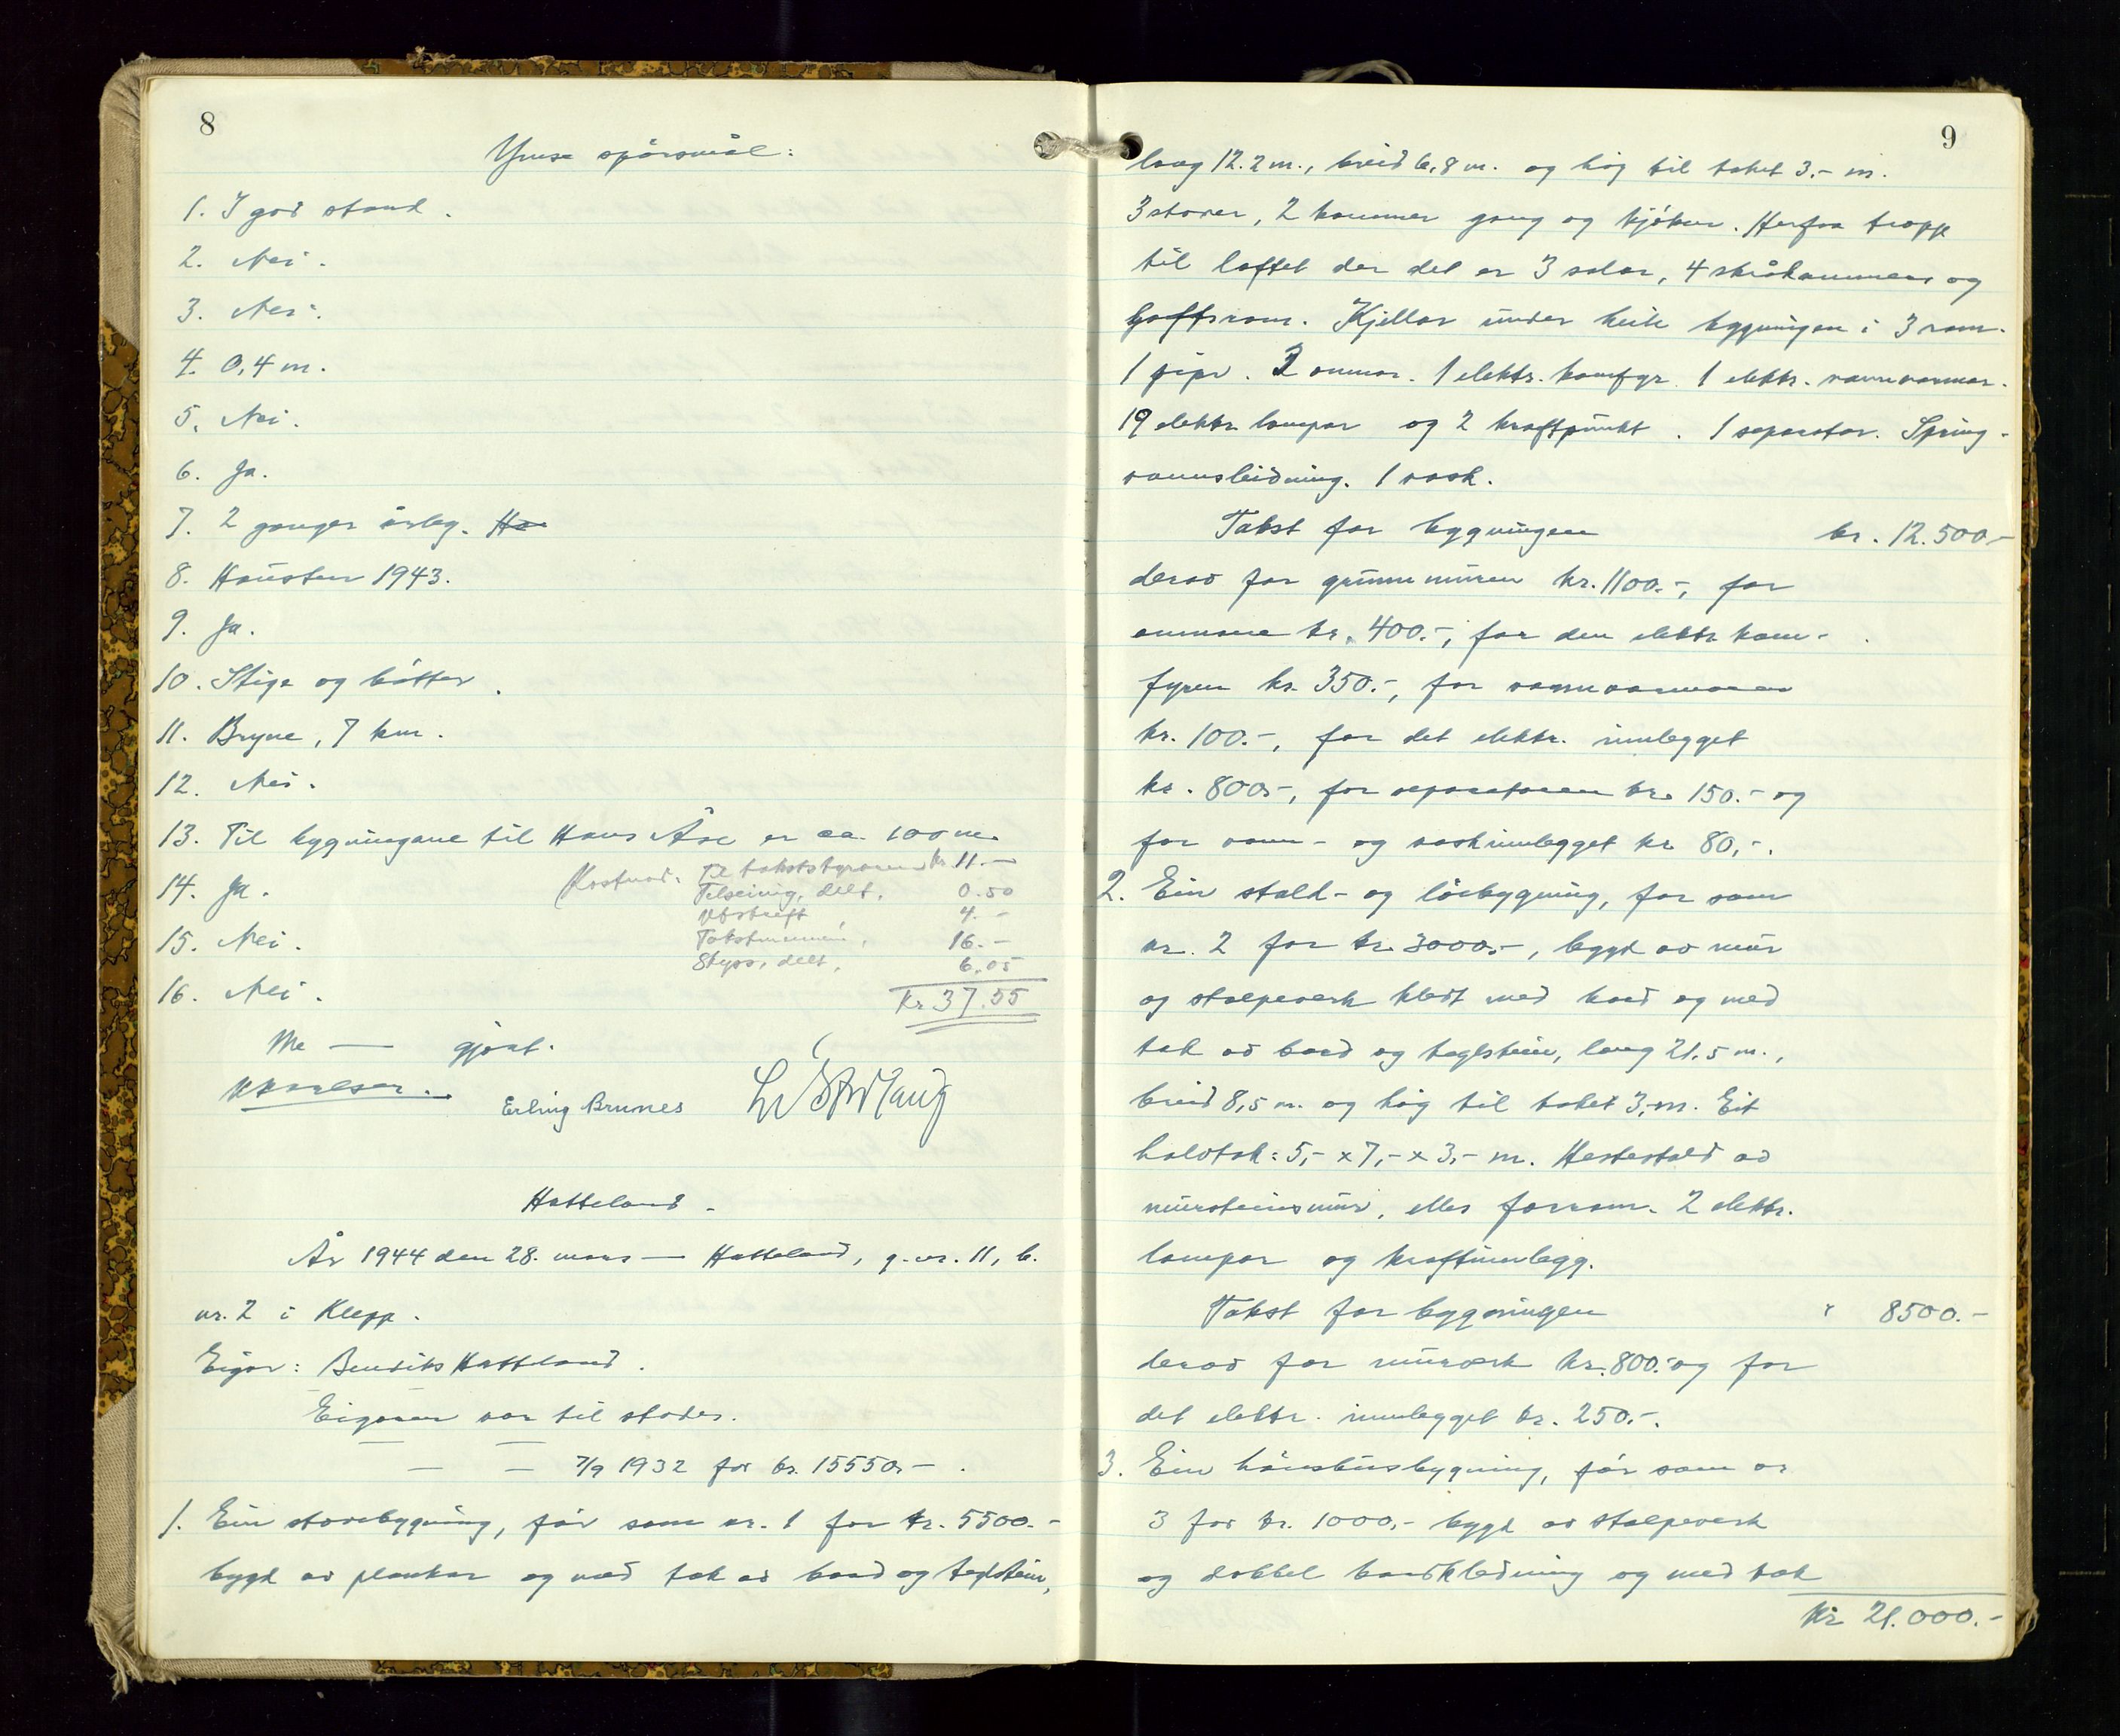 8
Ymse spörsmål:
1. I god stand.
2. Nei.
3. Nei.
4. 0,4 m.
5. Nei.
6. Ja.
7. 2 ganger årleg.
8. Hausten 1943.
9. Ja.
10. Stige og bötter.
11. Bryne, 7 km.
12. Nei.
13. Til bygningane til Hans Åse er ca. 100 m.
Kostnad: Til takststyraren kr 11.—
14. Ja.
Telseiing, delt, 0.50
Utskrift 4.-
15. Nei.
Takstmenn, 16.—
Skyss, delt, 6.05
16. Nei.
Kr 37.55
Me — gjort.
Erling Brunes
Hatteland.
År 1944 den 28. mars — Hatteland, g.nr. 11, b.
nr. 2 i Klepp.
Eigar: Hatteland.
Eigaren var til stades.
— —
— — 7/9 1932 for kr. 15550,—.
1. Ein stovebygning, för som nr. 1 for kr. 5500.-
bygd av plankar og med tak av bord og teglstein,
9
lang 12.2 m., breid 6,8 m. og høg til taket 3.- m.
3 stover, 2 kammer gang og kjöken. Herfra tropp
til loftet der det er 3 salar, 4 skråkammers og
loftsrom. Kjellar under heile bygningen i 3 rom.
1 pipe. 2 omnar. 1 elektr. komfyr 1 elektr. vannvarmar.
19 elektr. lampar og 2 kraftpunkt. 1 separator. Spring-
vannsleidning. 1 vask.
Takst for bygningen kr. 12.500.-
derav for grunnmuren kr. 1100.-, for
omnane kr. 400.-, for den elektr. kom-
fyren kr. 350.-, for vannvarmaren
kr. 100.-, for det elektr. innlegget
kr. 800.-, for separatoren kr. 150.- og
for vann- og vaskinnlegget kr 80,-.
2. Ein stald- og löebygning, för som
nr. 2 for kr. 3000.-, bygd av mur
og stolpeverk kledt med bord og med
tak av bord og teglstein, lang 21.5 m.,
breid 8,5 m. og høg til taket 3,-m. Eit
halvtak: 5,- x 7,- x 3,- m. Hestestald av
mursteinsmur, elles forrom. 2 elektr.
lampar og kraftinnlegg.
Takst for bygningen " 8500.-
derav for murverk kr. 800.- og for
det elektr. innlegget kr. 250.-.
3. Ein hönsehusbygning, för som nr
3 for kr. 1000,- bygd av stolpeverk
og dobbel bordkledning og med tak
Kr 21.000.-